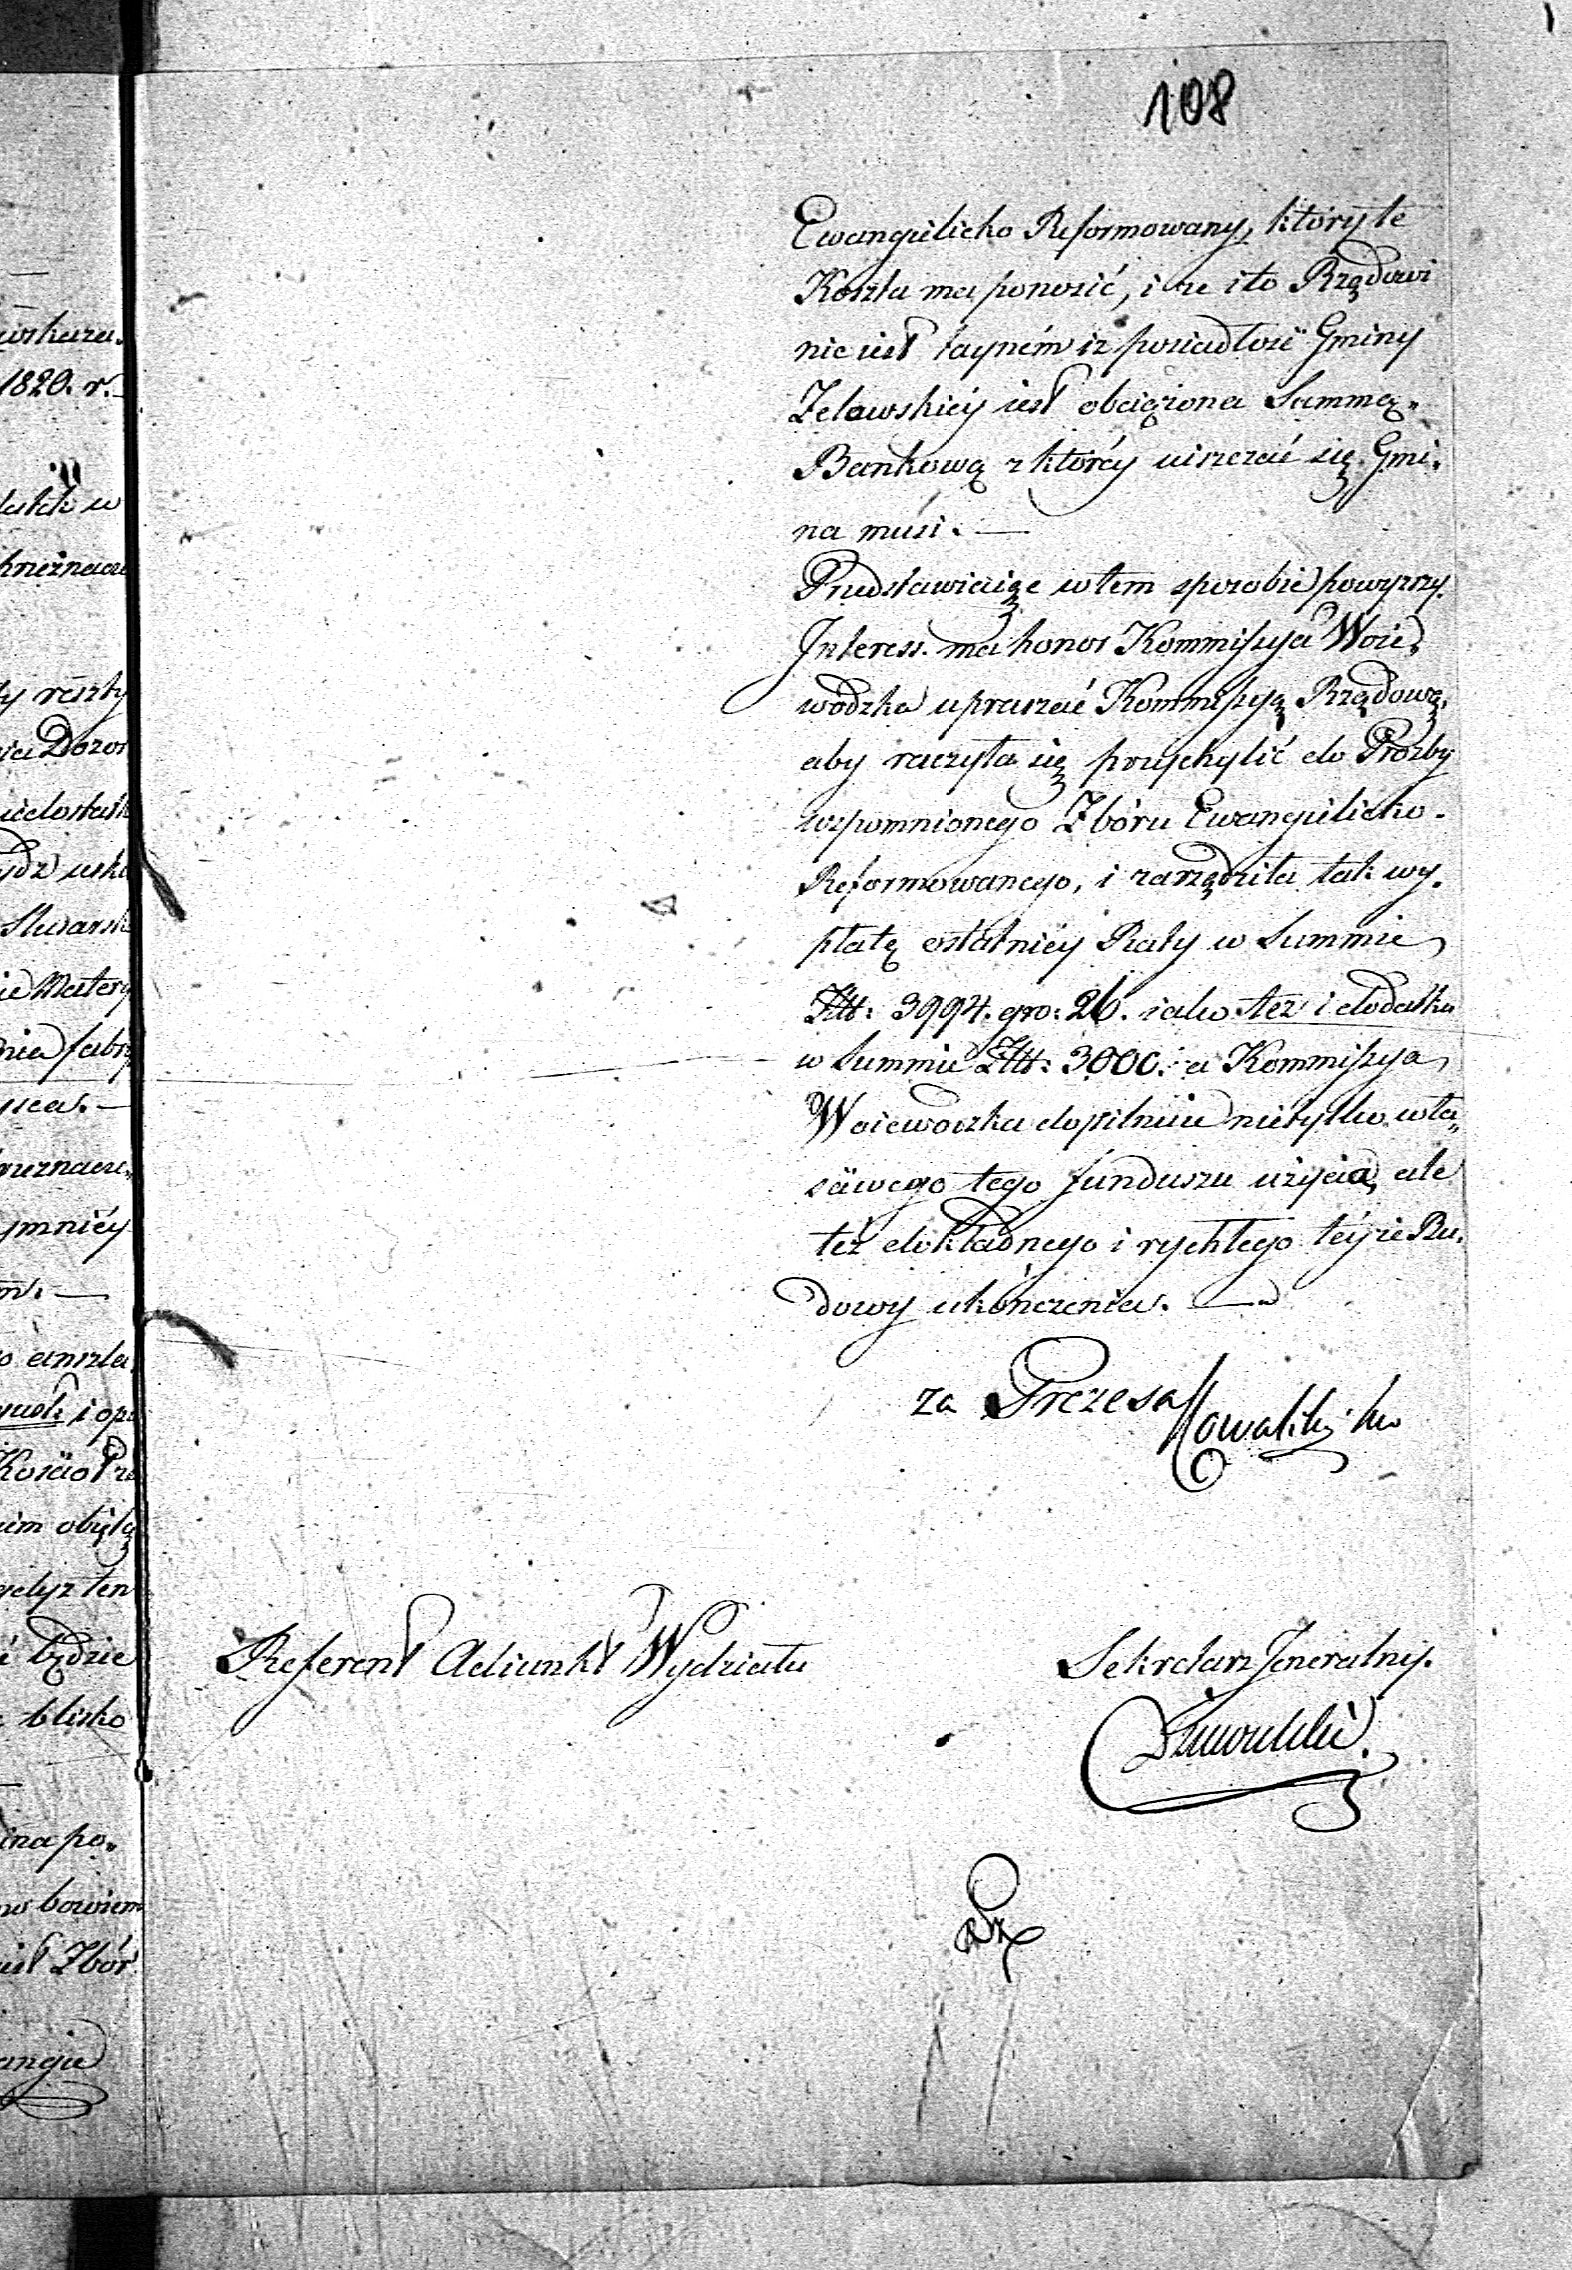 108
Ewangelicko Reformowany, który te
Koszta ma ponosić, i że i to Rządowi
nie iest tayném iż posiadłość Gminy
Zelowskiéy iest obciążona Summą
Bankową z któréy uiszczać się Gmi-
na musi. —
Przedstawiaiąc w tem sposobie powyższy
Interess. ma honor Kommissya Woie-
wódzka upraszać Kommissyą Rządową,
aby raczyła się przychylić do Prośby
wspomnionego Zboru Ewangelicko-
Reformowanego, i zarządziła tak wy-
płatę ostatniéy Raty w Summie
Złt: 3994. gro: 26. iako też i dodatku
w Summie Złt: 3000. a Kommissya
Woiewódzka dopilnuie nietylko wła-
ściwego tego funduszu użycia, ale
też dokładnego i rychłego téyże Bu-
dowy ukończenia. —
za Prezesa
Referent Adiunkt Wydziału
Sekretarz Jeneralny.
wskaza-
1820. r.
w
reszty
Dozor
Mater
ymniéy
i opa
Kościoł
gdyż ten
będzie
blisko
ina po-
bowiem
iest Zbór